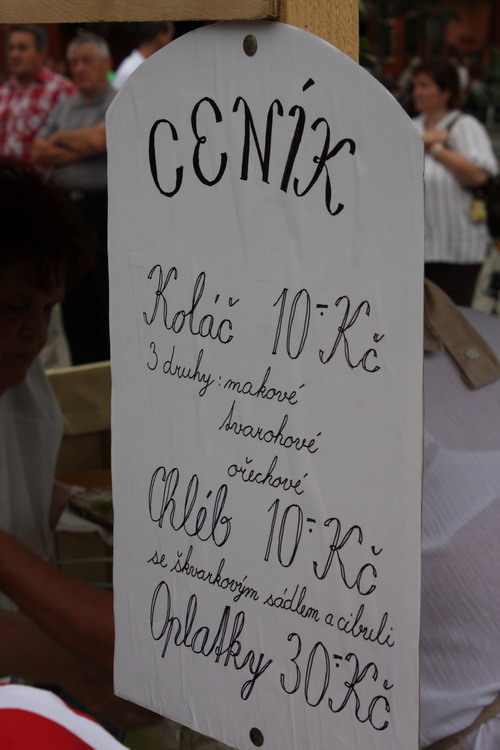 CENÍK
Koláč 10.- Kč
3 druhy: makové
tvarohové
ořechové
Chléb 10.- Kč
se škvarkovým sádlem a cibulí
Oplatky 30.- Kč